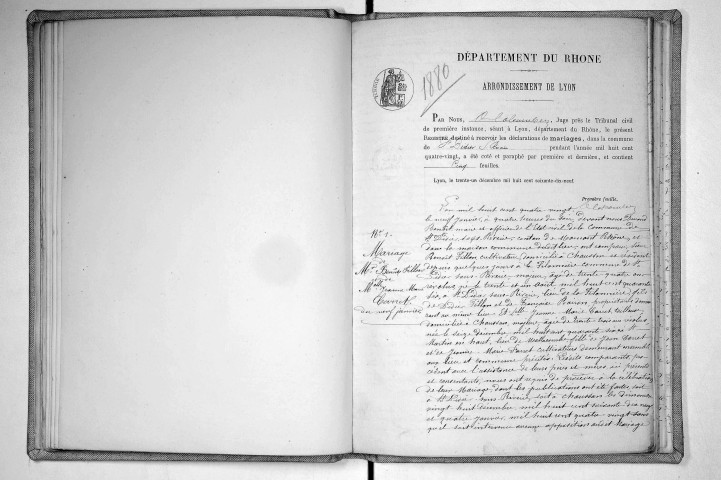 DÉPARTEMENT DU RHONE
ARRONDISSEMENT DE LYON
1880
PAR NOUS, Juge près le Tribunal civil
de première instance, séant à Lyon, département du Rhône, le présent
REGISTRE destiné à recevoir les déclarations de mariages, dans la commune
de St Didier s/ Riverie pendant l'année mil huit cent
quatre-vingt, a été coté et paraphé par première et dernière, et contient
Cinq feuilles.
Lyon, le trente-un décembre mil huit cent soixante-dix-neuf
Première feuille,
L'an mil huit cent quatre vingt
le neuf janvier, à quatre heures du soir, devant nous
maire et officier de l'état civil de la Commune de
St Didier sous Riverie, canton de Mornant Rhône, et
dans la maison commune dudit lieu, ont comparu, sieur
Benoit Fillon cultivateur domicilié à Chaussan et résidant
depuis quelques jours à commune de St
Didier sous Riverie, majeur, âgé de trente quatre ans
révolus, né le trente et un août mil huit cent quarante
cinq, à St Didier sous Riverie, lieu de fils
de Fillon et de Françoise propriétaires demeu
rant au même lieu. Et Jeanne Marie
domiciliée à Chaussan, majeure, âgée de trente trois ans révolus,
née le seize décembre mil huit cent quarante six à St
Martin en haut, lieu de fille de Jean
et de Jeanne Marie cultivateurs demeurant ensemble
aux lieu et commune précités. Lesdits comparants, pro
cédant avec l'assistance de leurs pères et mères ici présents
et consentants, nous ont requis de procéder à la célébration
de leur Mariage dont les publications ont été faites soit
à St Didier sous Riverie, soit à Chaussan les dimanches
vingt huit décembre mil huit cent soixante dix neuf
et quatre janvier mil huit cent quatre vingt sans
qu'il soit intervenu aucune opposition audit Mariage
No 1.
Mariage
de
Mr Benoit Fillon
et
Mlle Jeanne Marie
du neuf janvier